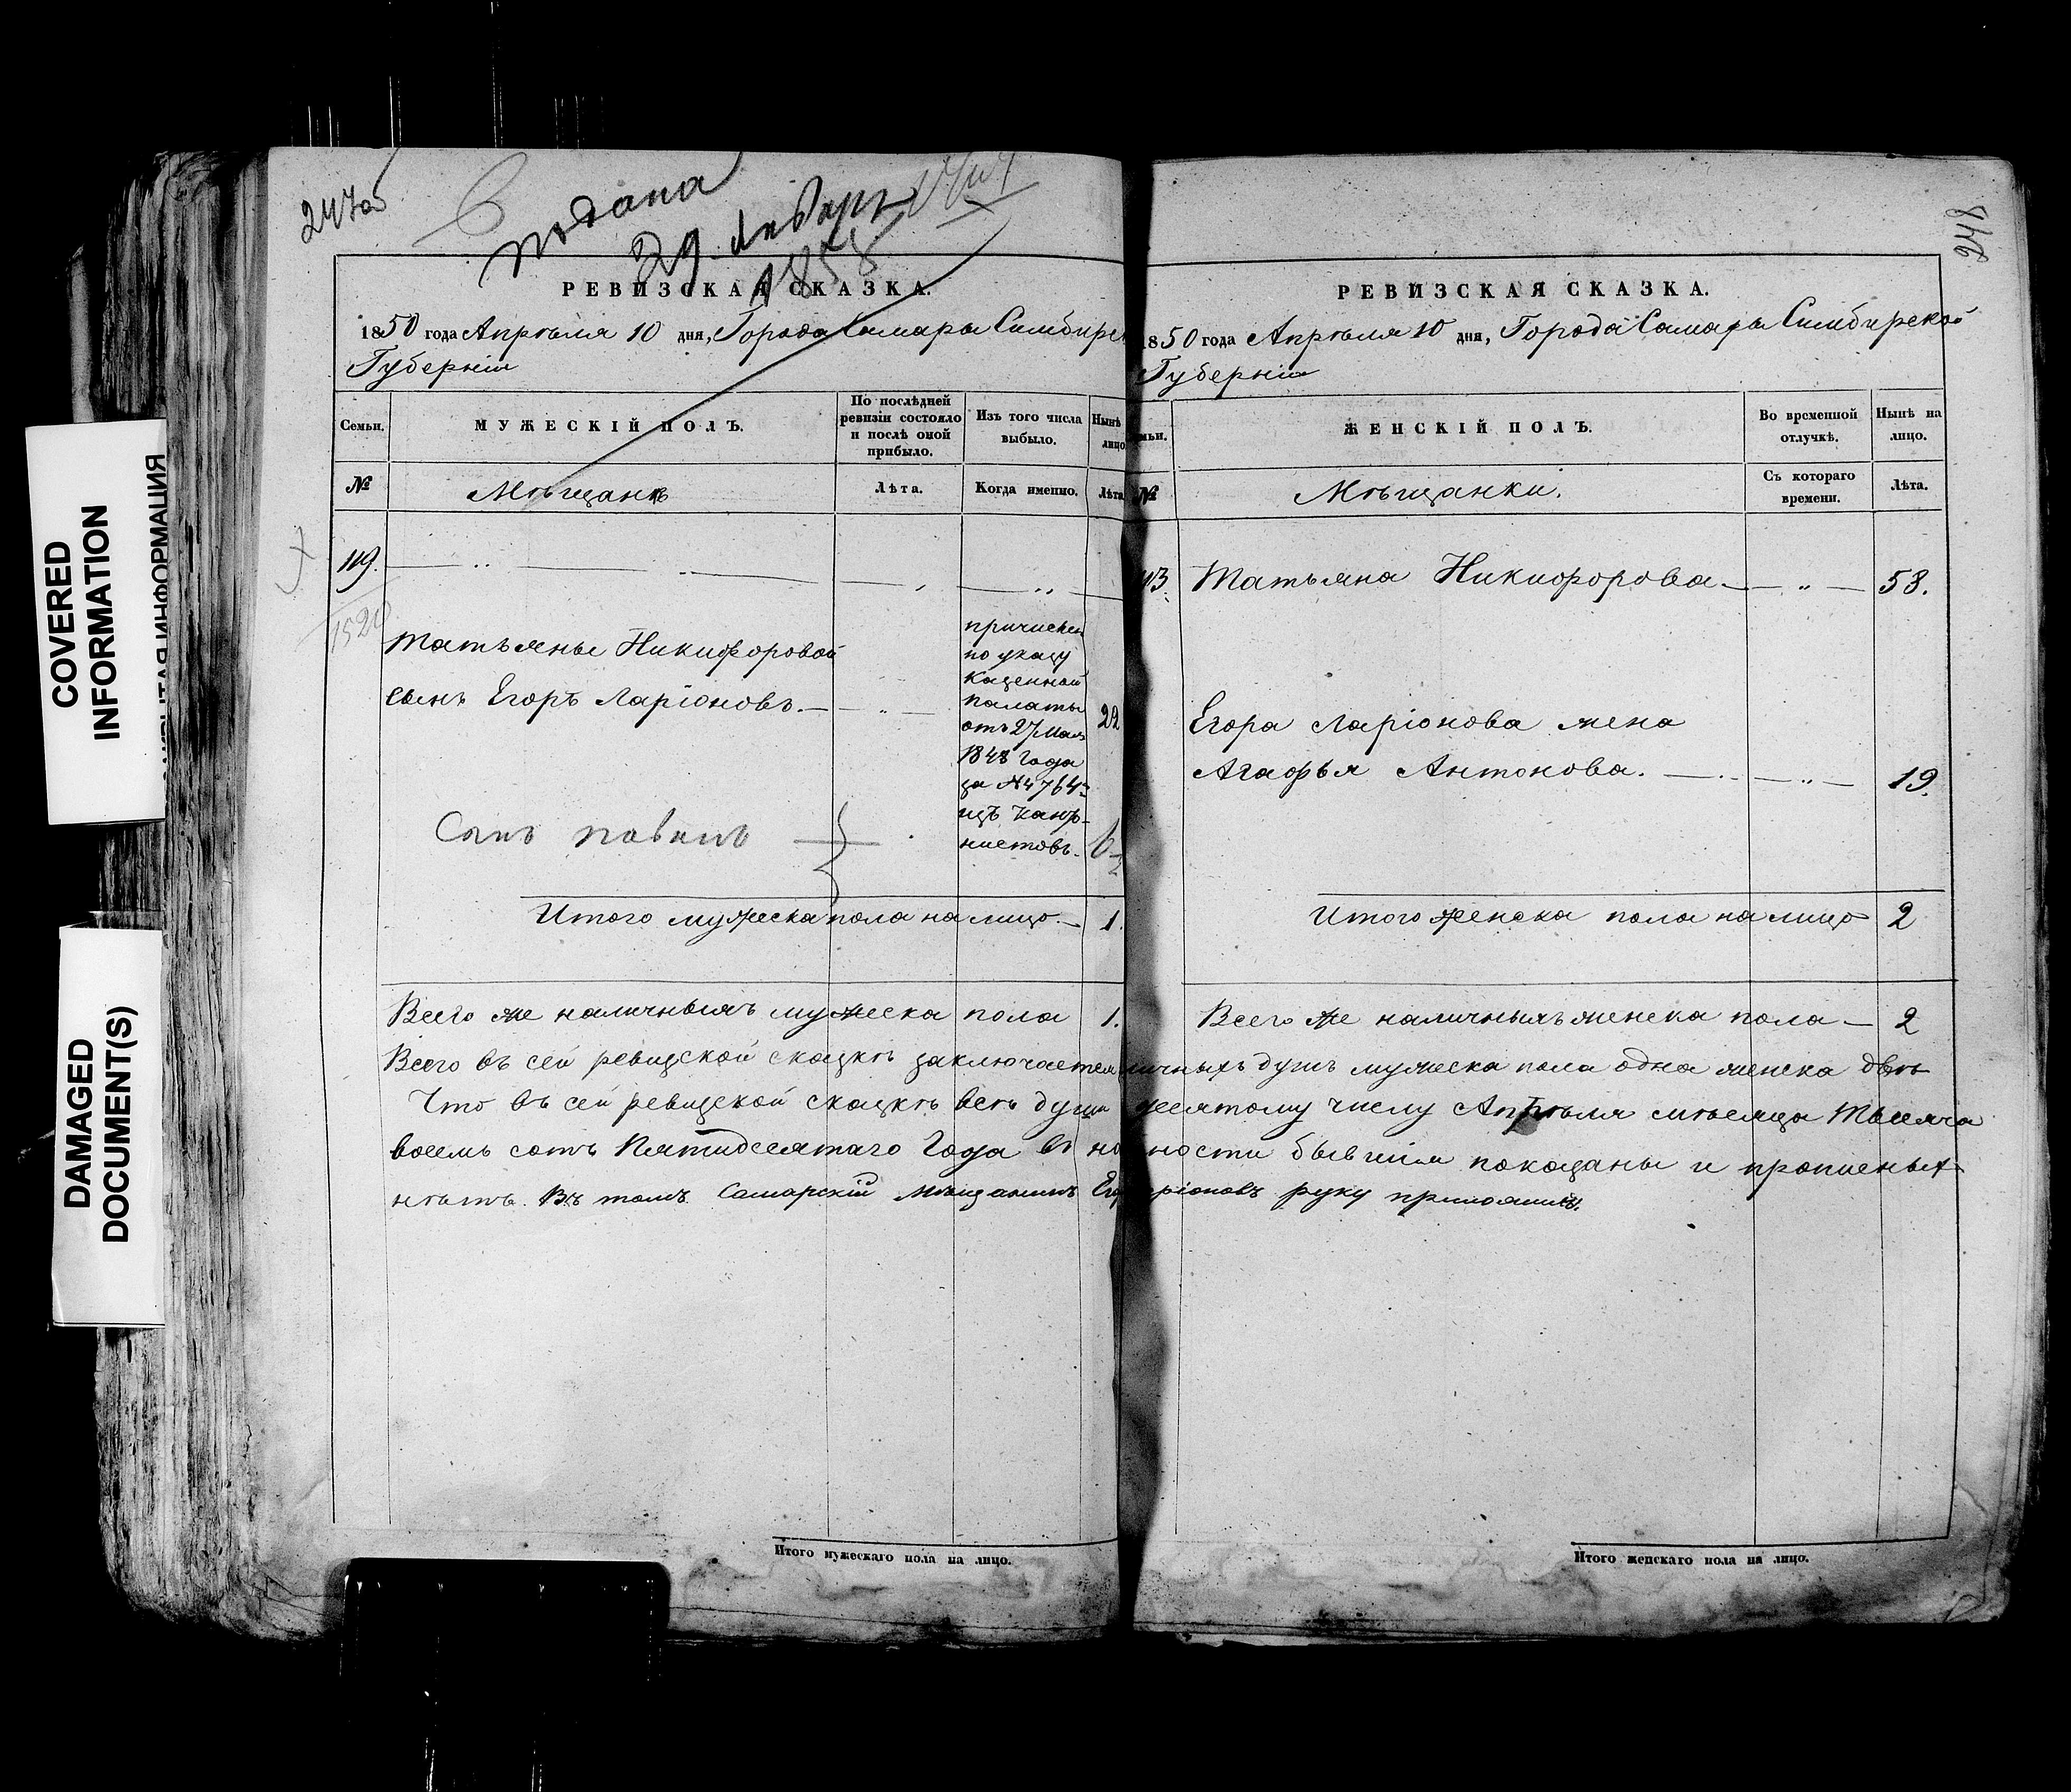 COVERED
INFORMATION
DAMAGED
DOCUMENT(S)
247об
подана
29 Январь
1858
РЕВИЗСКАЯ СКАЗКА.
1850 года Апрѣля 10 дня, Города Самары Симбирс
Губерніи
Семьи.
МУЖЕСКІЙ ПОЛЪ.
По послѣдней ревизіи состояло и послѣ оной прибыло.
Изъ того числа выбыло.
Нынѣ лицо
№
Мѣщанъ
Лѣта.
Когда именно.
Лѣта
119.
1520
Татьяны Никифоровой
сынъ Егоръ Ларіоновъ.
причислен
по указу
Казенной
палаты
отъ 27 Мая
1848 года
за №4764
изъ кант-
нистовъ.
22
Сынъ Павелъ
6
Итого мужеска пола на лицо. 1.
Всего же наличныхъ мужеска пола 1.
Всего въ сей ревизской сказкѣ заключается
Что въ сей ревизской сказкѣ всѣ души
восемь сотъ Пятидесятаго Года
нѣтъ. Въ томъ Самарскій Мѣщанинъ Ег
Итого мужескаго пола на лицо.
846
РЕВИЗСКАЯ СКАЗКА.
1850 года Апрѣля 10 дня, Города Самары Симбирской
Губерніи
мьи.
ЖЕНСКІЙ ПОЛЪ.
Во временной отлучкѣ.
Нынѣ на лицо.
№
Мѣщанки.
Съ котораго времени.
Лѣта.
Татьяна Никифорова 58.
Егора Ларіонова жена
Агафья Антонова. 19.
Итого женска пола на лицо 2
Всего же наличныхъ женска пола 2
ичныхъ душъ мужеска пола одна женска двѣ
десятому числу Апрѣля мѣсяца Тысяча
ности бывшія показаны и прописныхъ
ріоновъ руку приложилъ.
Итого женскаго пола на лицо.